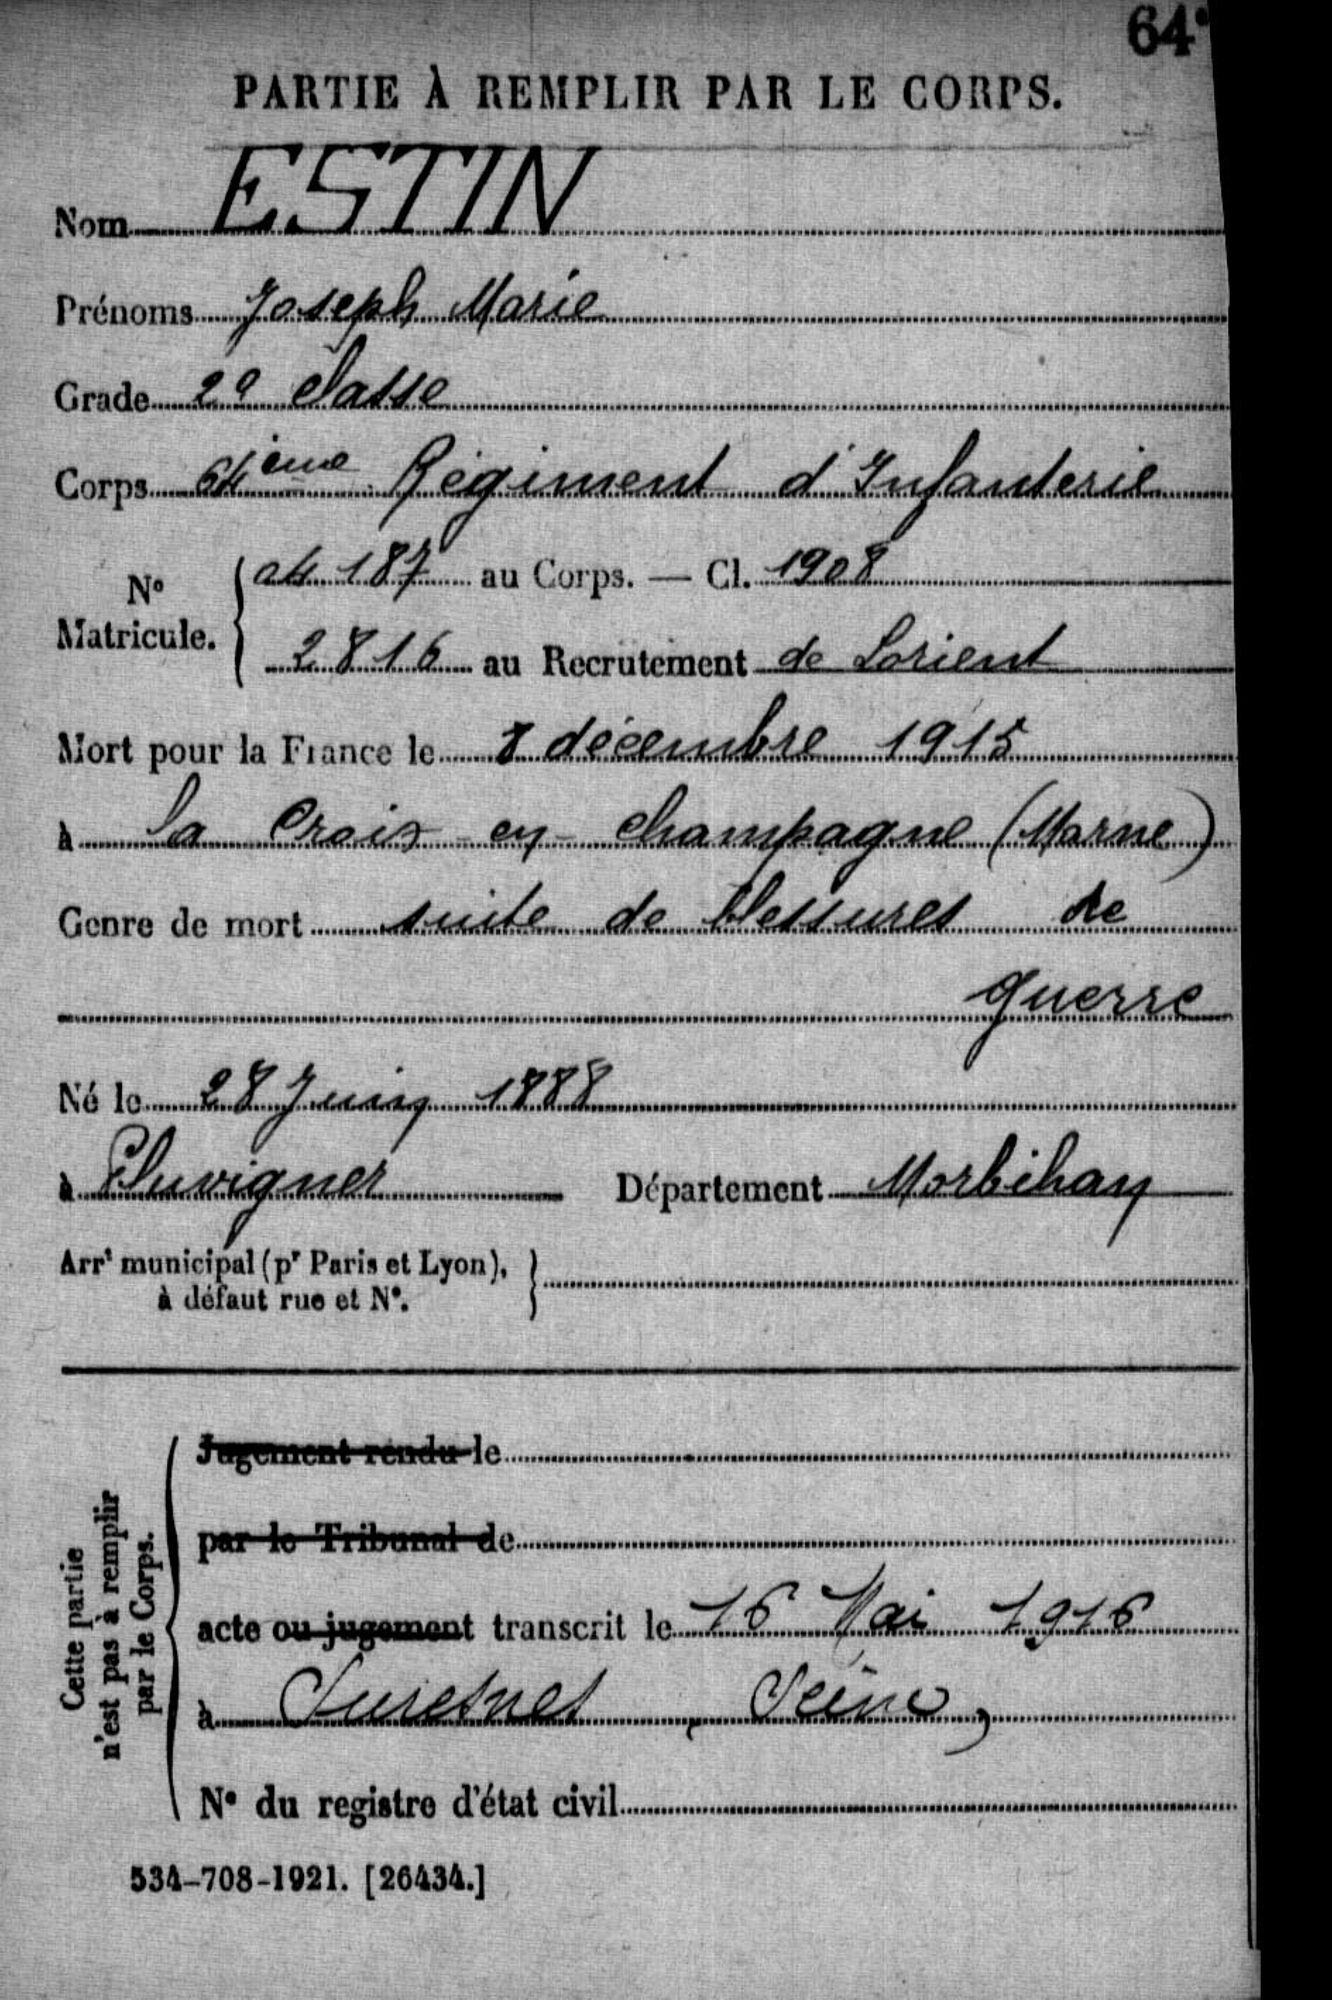 64e
PARTIE À REMPLIR PAR LE CORPS.
Nom ESTIN
Prénoms Joseph Marie
Grade 2e classe
Corps 64ième Régiment d'Infanterie
No Matricule. { 187 au Corps. — Cl. 1908
2816 au Recrutement de Lorient
Mort pour la France le 8 décembre 1915
à la Croix-en-Champagne (Marne)
Genre de mort suite de blessures de
guerre
Né le 28 Juin 1888
à Pluvigner Département Morbihan
Arrt municipal (pr Paris et Lyon), à défaut rue et No. }
Cette partie n'est pas à remplir par le Corps.
Jugement rendu le
par le Tribunal de
acte ou jugement transcrit le 16 Mai 1916
à Suresnes, Seine,
No du registre d'état civil
534-708-1921. [26434.]